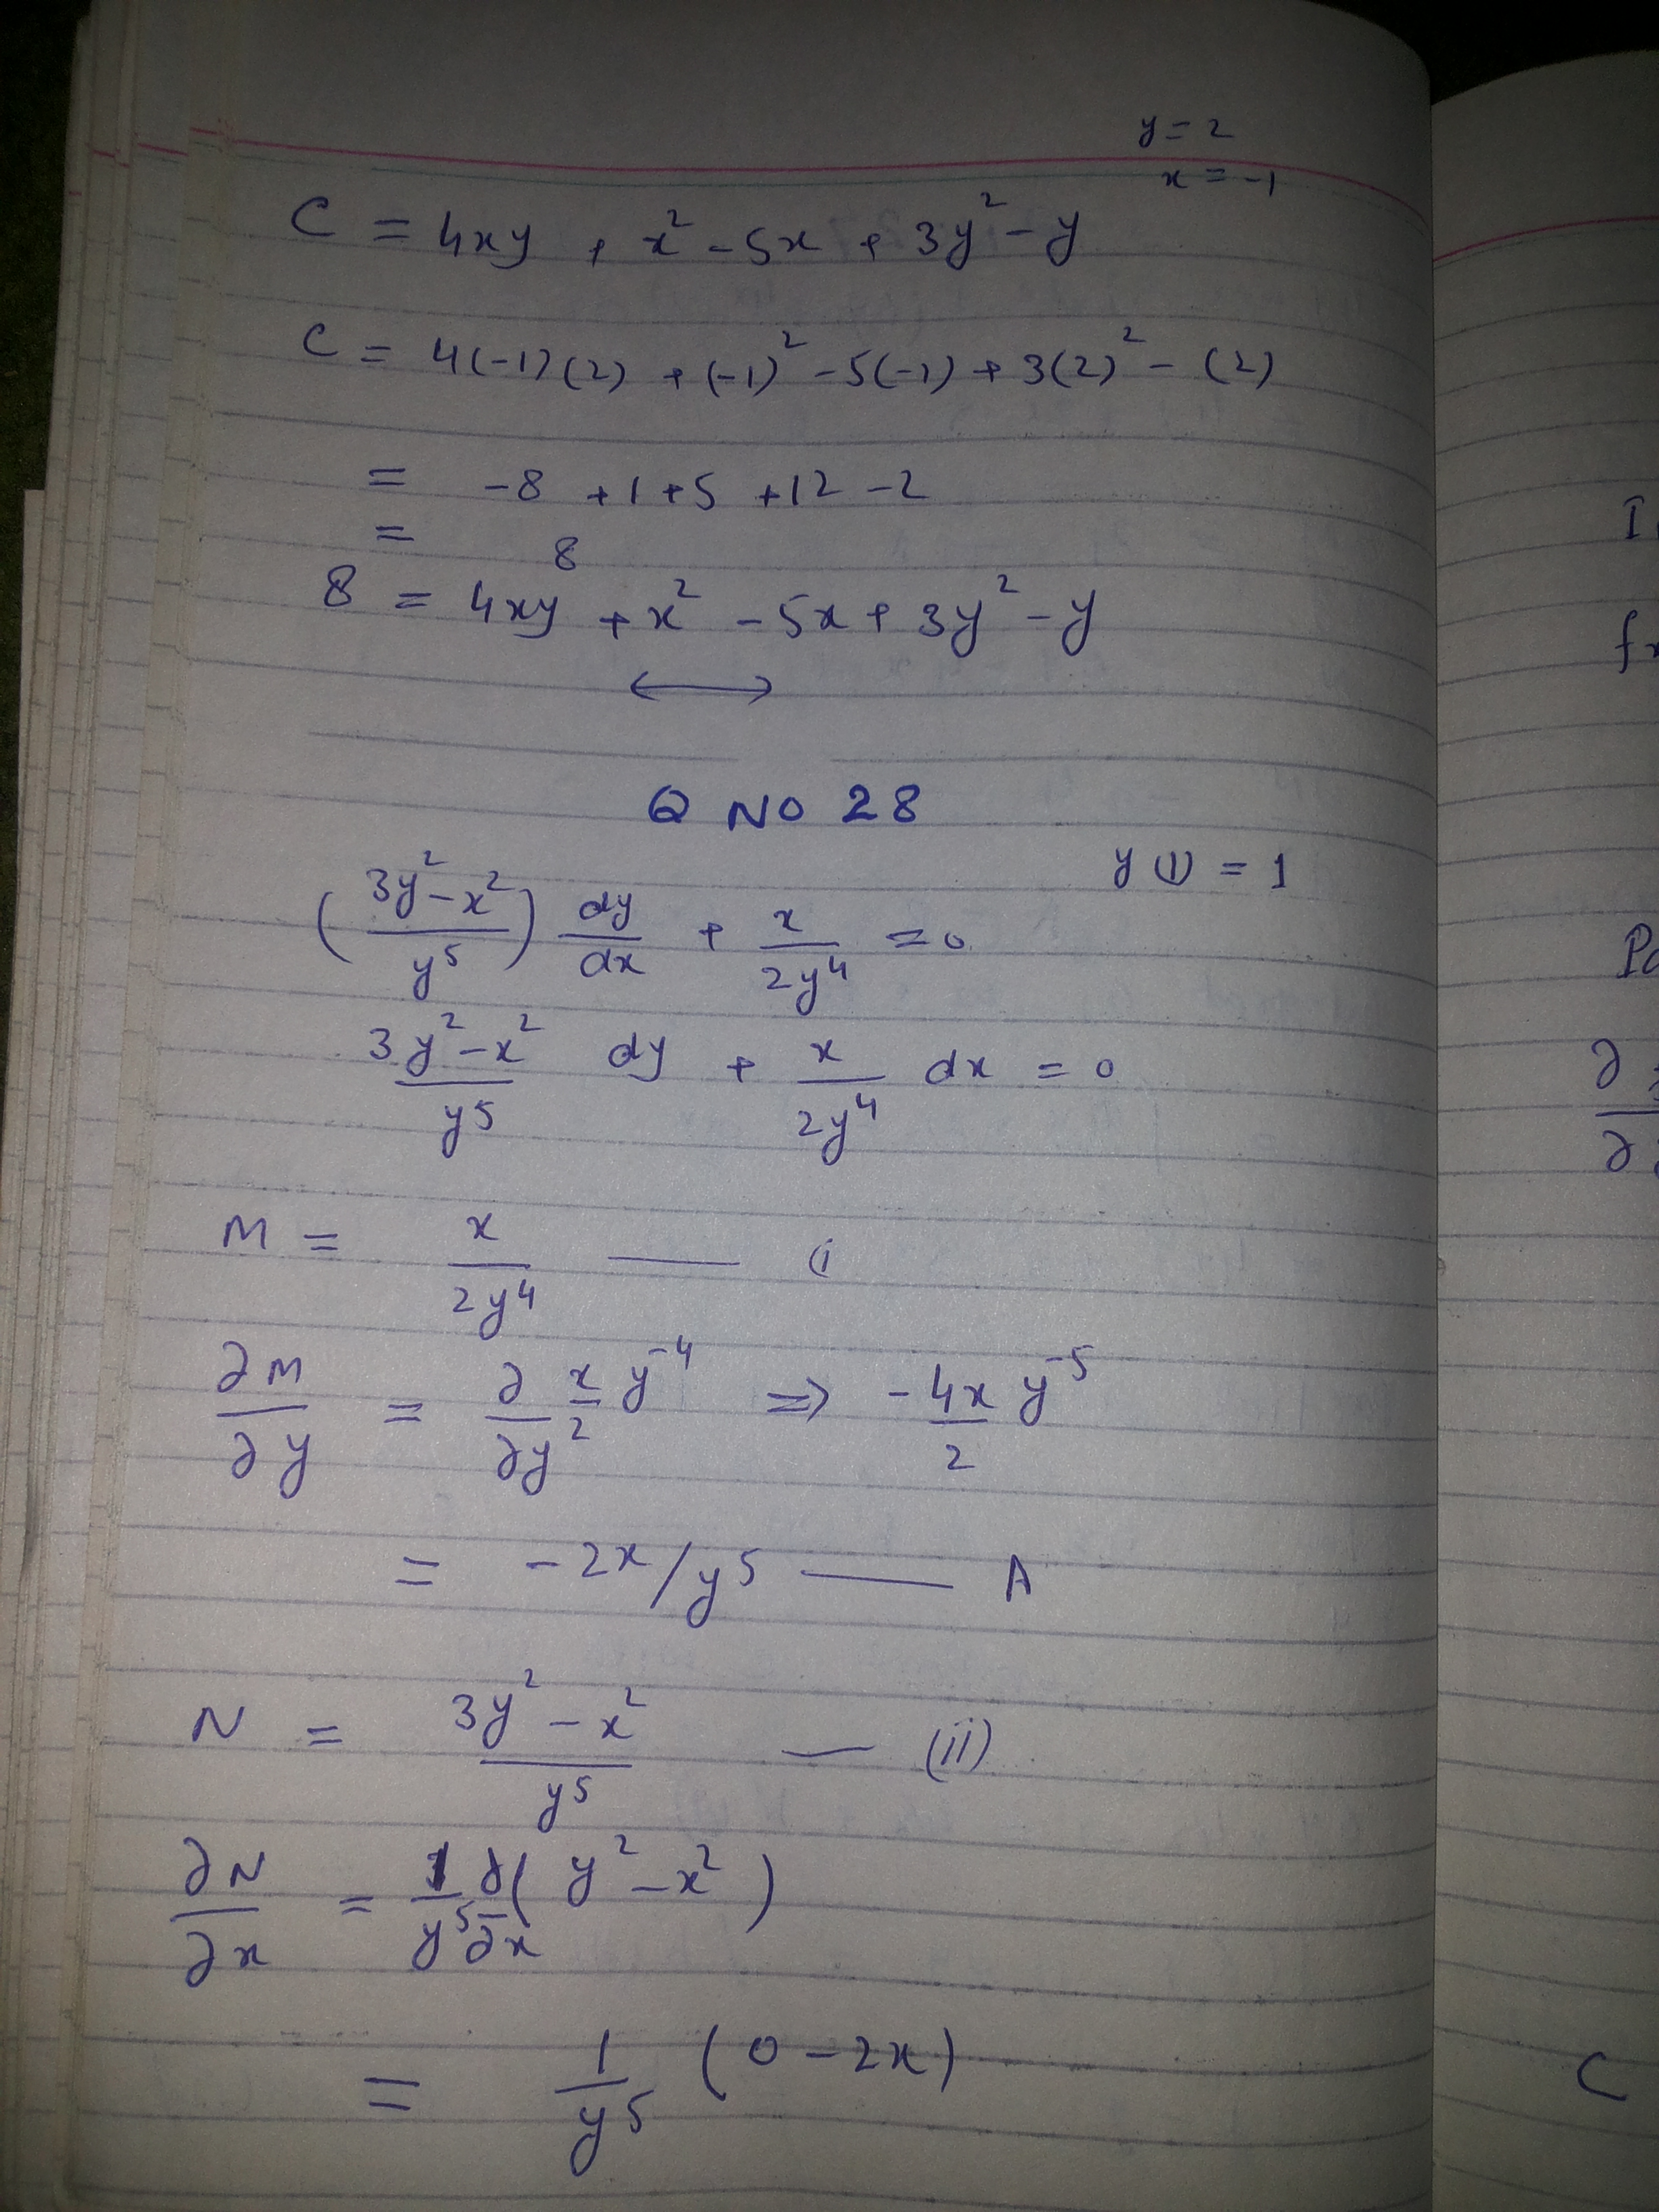 y = 2
x = -1
C = 4xy + x² - 5x + 3y² - y
C = 4(-1)(2) + (-1)² - 5(-1) + 3(2)² - (2)
= -8 + 1 + 5 + 12 - 2
= 8
8 = 4xy + x² - 5x + 3y² - y
Q NO 28
y(1) = 1
((3y² - x²)/y⁵) dy/dx + x/2y⁴ = 0
(3y² - x²)/y⁵ dy + x/2y⁴ dx = 0
M = x/2y⁴ — (i
∂M/∂y = ∂/∂y x/2 y⁻⁴ ⇒ -4x/2 y⁻⁵
= -2x/y⁵ — A
N = (3y² - x²)/y⁵ — (ii)
∂N/∂x = 1/y⁵ ∂/∂x (y² - x²)
= 1/y⁵ (0 - 2x)
C